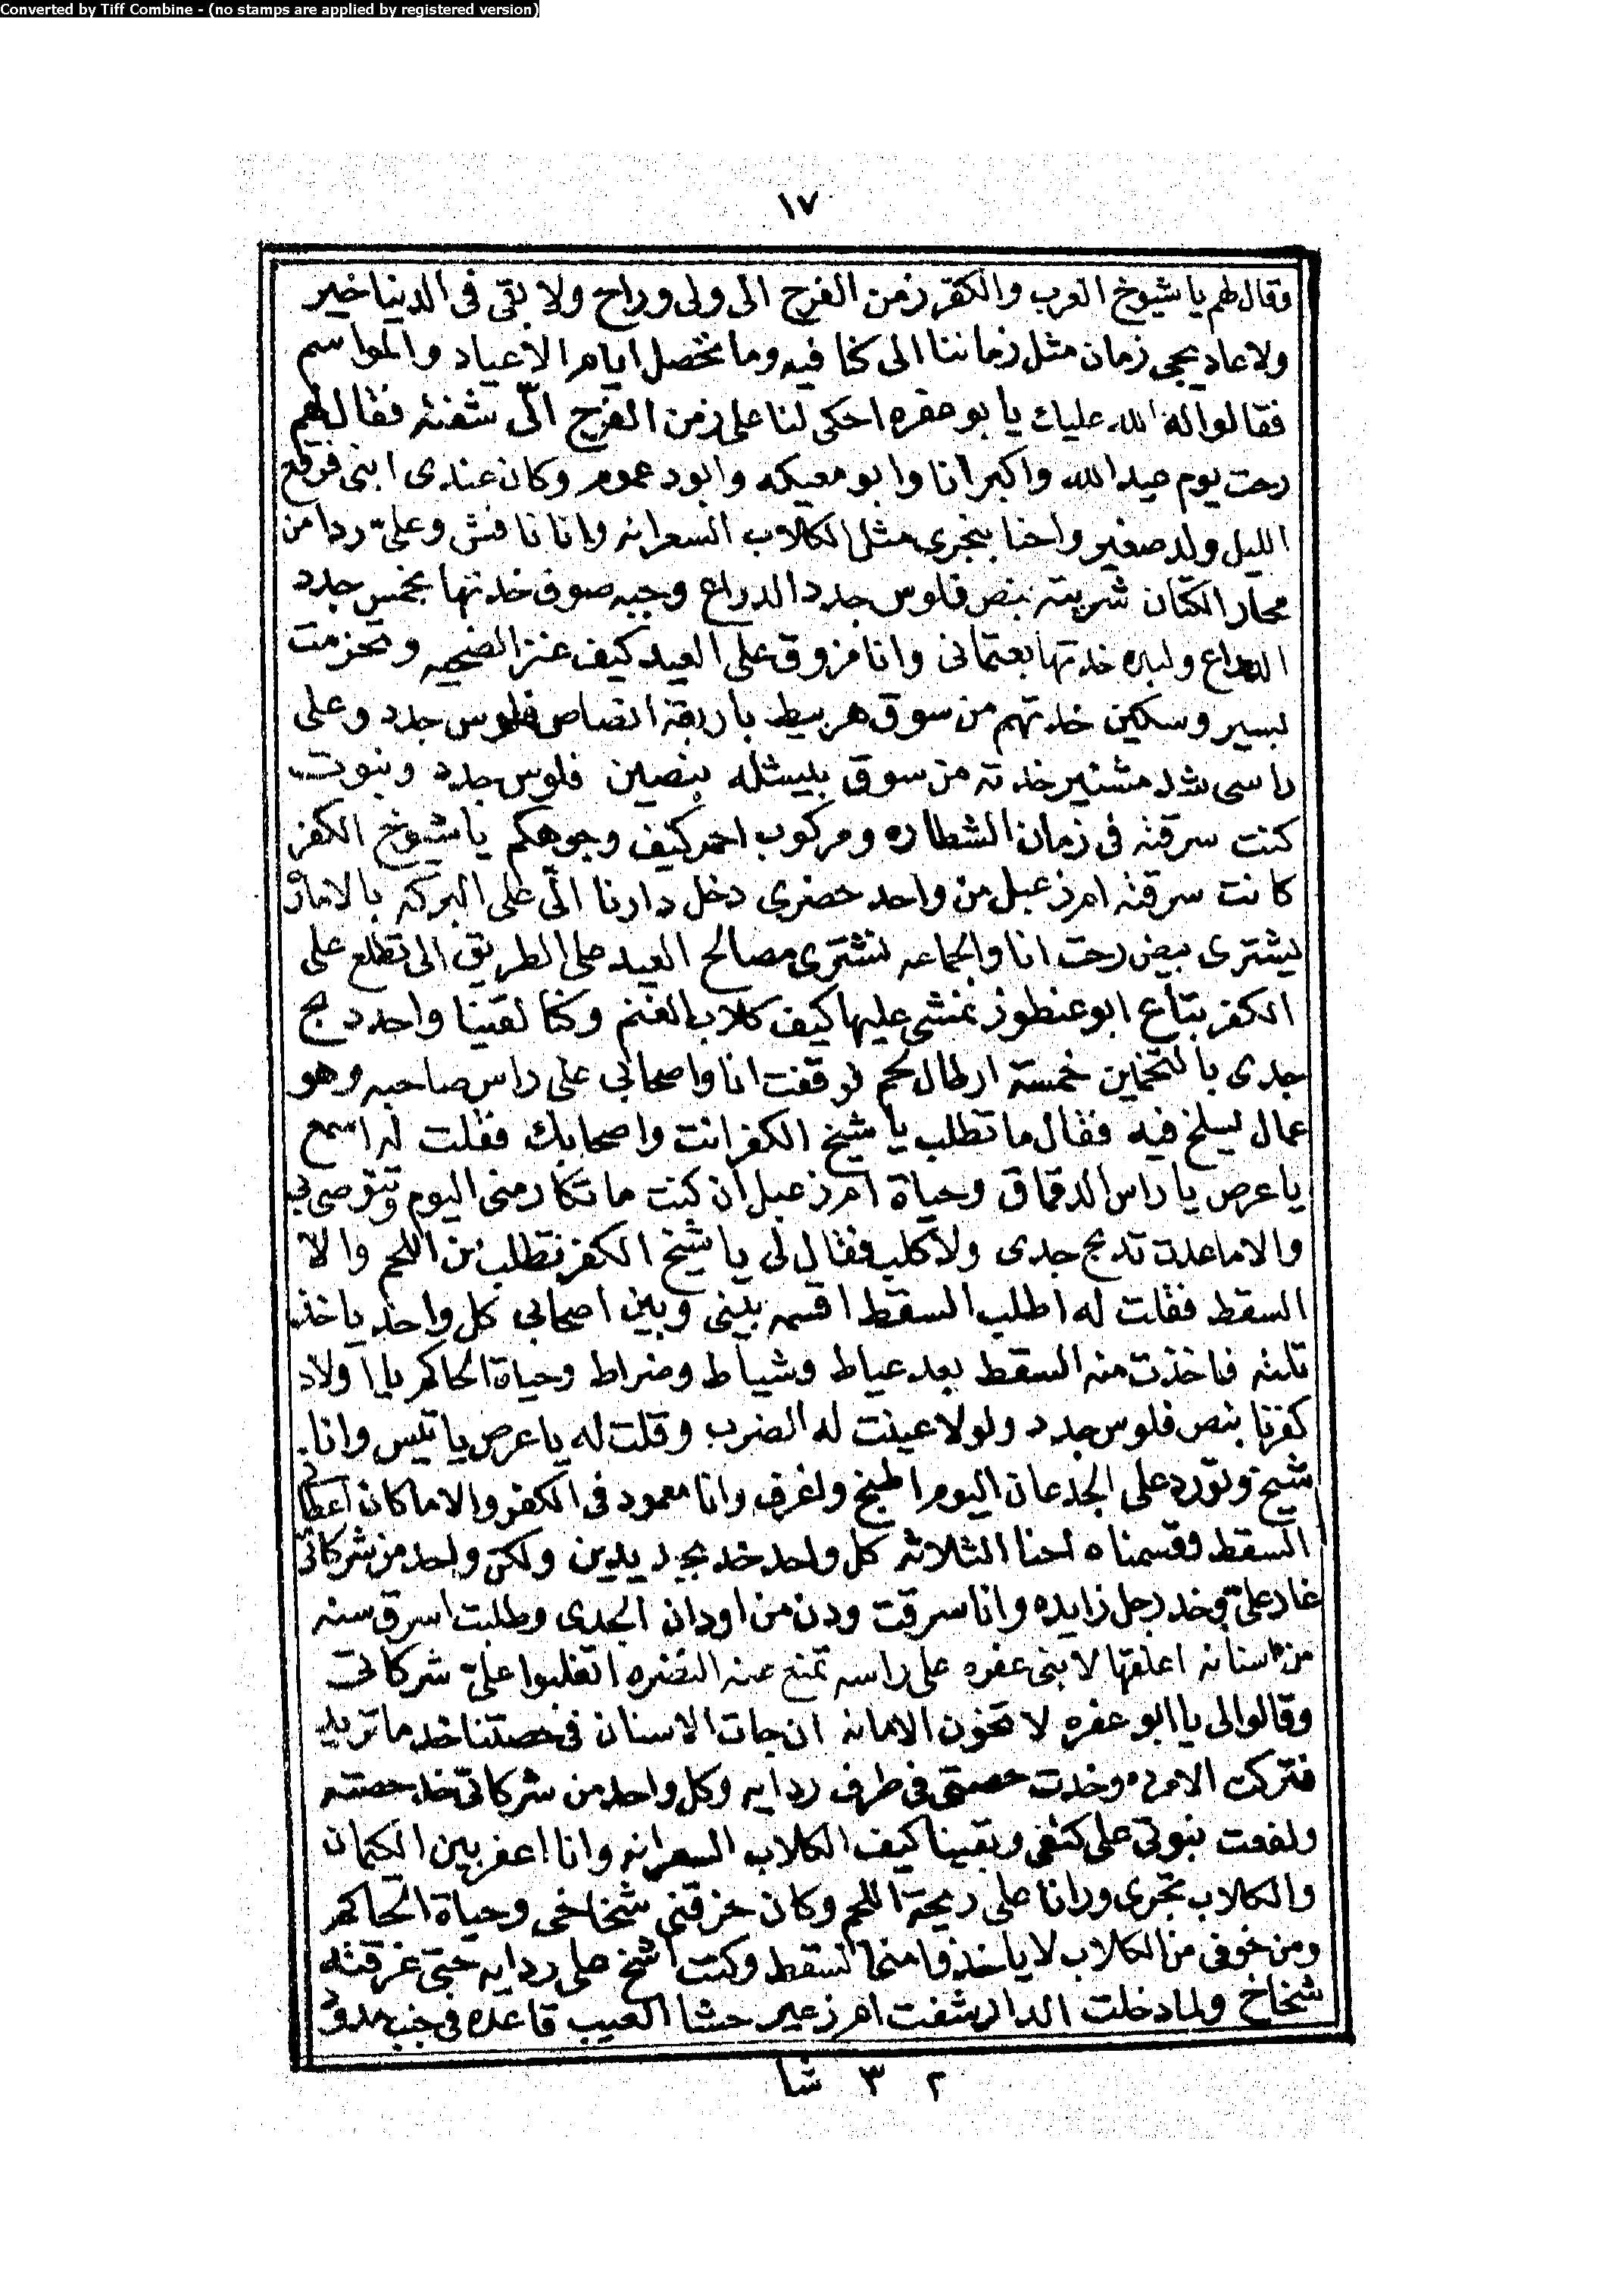 Converted by Tiff Combine - (no stamps are applied by registered version)
١٧
فقال لهم يا شيوخ العرب والكفر زمن الفرح الى ولى وراح ولا بقى فى الدنيا خير
ولا عاد يجى زمان مثل زماننا الى كنا فيه وما نحصل ايام الاعياد والمواسم
فقالوا له الله عليك يا بو عفره احكى لنا على زمن الفرح الّى شفته فقال لهم
رحت يوم عيد الله واكبر انا وابو معيكه وابو دعموم وكان عندى ابنى فرقع
الليل ولد صغير واحنا بنجرى مثل الكلاب السعرانه وانا نافش وعلىّ ردا من
محار الكتان شريته بنص فلوس جدد الدراع وجبه صوف خدتها بخمس جدد
الدراع ولبده خدتها بعتمانى وانا مزوق على العيد كيف عنز الضحيه وتحزمت
بسير وسكين خدتهم من سوق هربيط باربعة انصاص فلوس جدد وعلى
راسى شد مشنير خدته من سوق بلبيشله بنصين فلوس جدد ونبوت
كنت سرقته فى زمان الشطاره ومركوب احمر كيف وجوهكم يا شيوخ الكفر
كانت سرقته ام زعبل من واحد حضرى دخل دارنا الّى على البركه بالاماره
يشترى بيض رحت انا والجماعه نشترى مصالح العيد على الطريق الى تطلع على
الكفر بتاع ابو عنطوز نمشى عليها كيف كلاب الغنم وكنا لقينا واحد دبح
جدى بالتخمين خمسة ارطال لحم لو قفت انا واصحابى على راس صاحبه وهو
عمال يسلخ فيه فقال ما تطلب يا شيخ الكفر انت واصحابك فقلت له اسمع
يا عرص يا راس الدقماق وحياة ام زعبل ان كنت ما تكارمنى اليوم وتتوصى بى
والا ما عدت تدبح جدى ولا كلب فقال لى يا شيخ الكفر تطلب من اللحم والا
السقط فقلت له اطلب السقط اقسمه بينى وبين اصحابى كل واحد ياخذ
تلته فاخذت منه السقط بعد عياط وشياط وضراط وحياة الحاكم يا اولاد
كفرنا بنص فلوس جدد ولولا عينت له الضرب وقلت له يا عرص يا تيس وانا
شيخ وتورد على الجدعان اليوم اطبخ ولغرف وانا معمود فى الكفر والا ما كان اعطانى
السقط وقسمناه احنا الثلاثه كل واحد خد بجديدين ولكن واحد من شركاتى
غار علىّ وخد رجل زايده وانا سرقت ودن من اودان الجدى وطلبت اسرق سنه
من اسنانه اعلقها لابنى عفره على راسه تمنع عنه النضره اتغلبوا علىّ شركاتى
وقالوا لى يا ابو عفره لا تخون الامانه ان جات الاسنان فى حصتنا خد ما تريد
فتركت الامر وخدت حصتى فى طرف ردايه وكل واحد من شركاتى خد حصته
ولفعت نبوتى على كتفى وبقينا كيف الكلاب السعرانه وانا اعفر بين الكتمان
والكلاب تجرى ورانا على ريحة اللحم وكان خرقنى شخاخى وحياة الحاكم
ومن خوفى من الكلاب لا ياخذوا منا السقط وكنت اشخ على ردايه حتى غرقته
شخاخ ولما دخلت الدار شفت ام زعبر حشا العيب قاعده فى جنب مدود
٢ ٣ شا